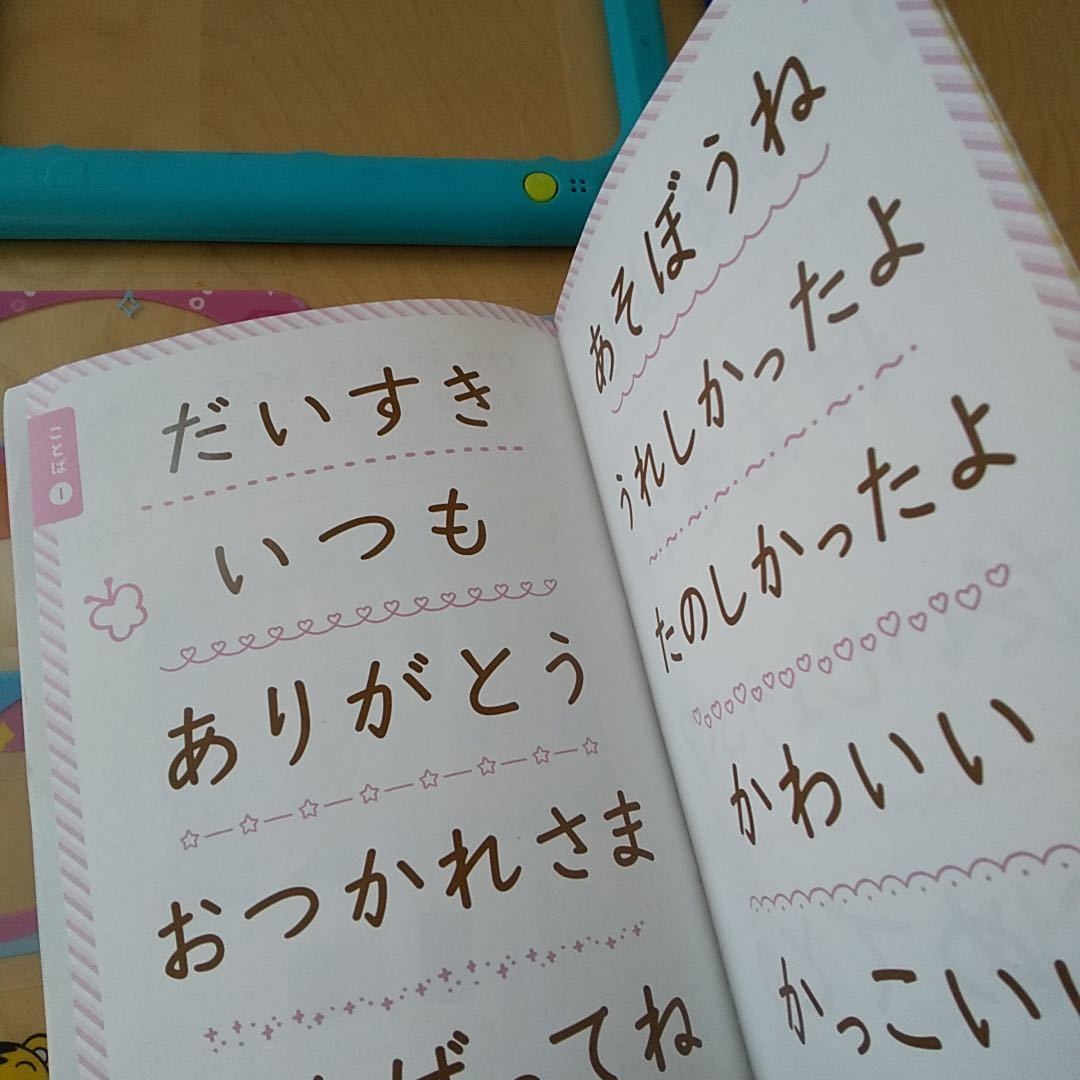 ことば 1
だいすき
いつも
ありがとう
おつかれさま
ばってね
あそぼうね
うれしかったよ
たのしかったよ
かわいい
かっこいい